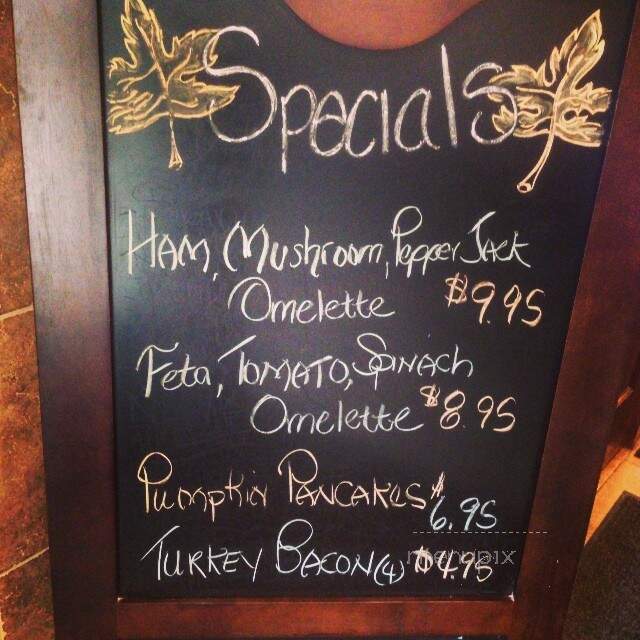 Specials
Ham, Mushroom, Pepper Jack
Omelette $9.95
Feta, Tomato, Spinach
Omelette $8.95
Pumpkin Pancakes $6.95
Turkey Bacon (4) $4.95
menupix